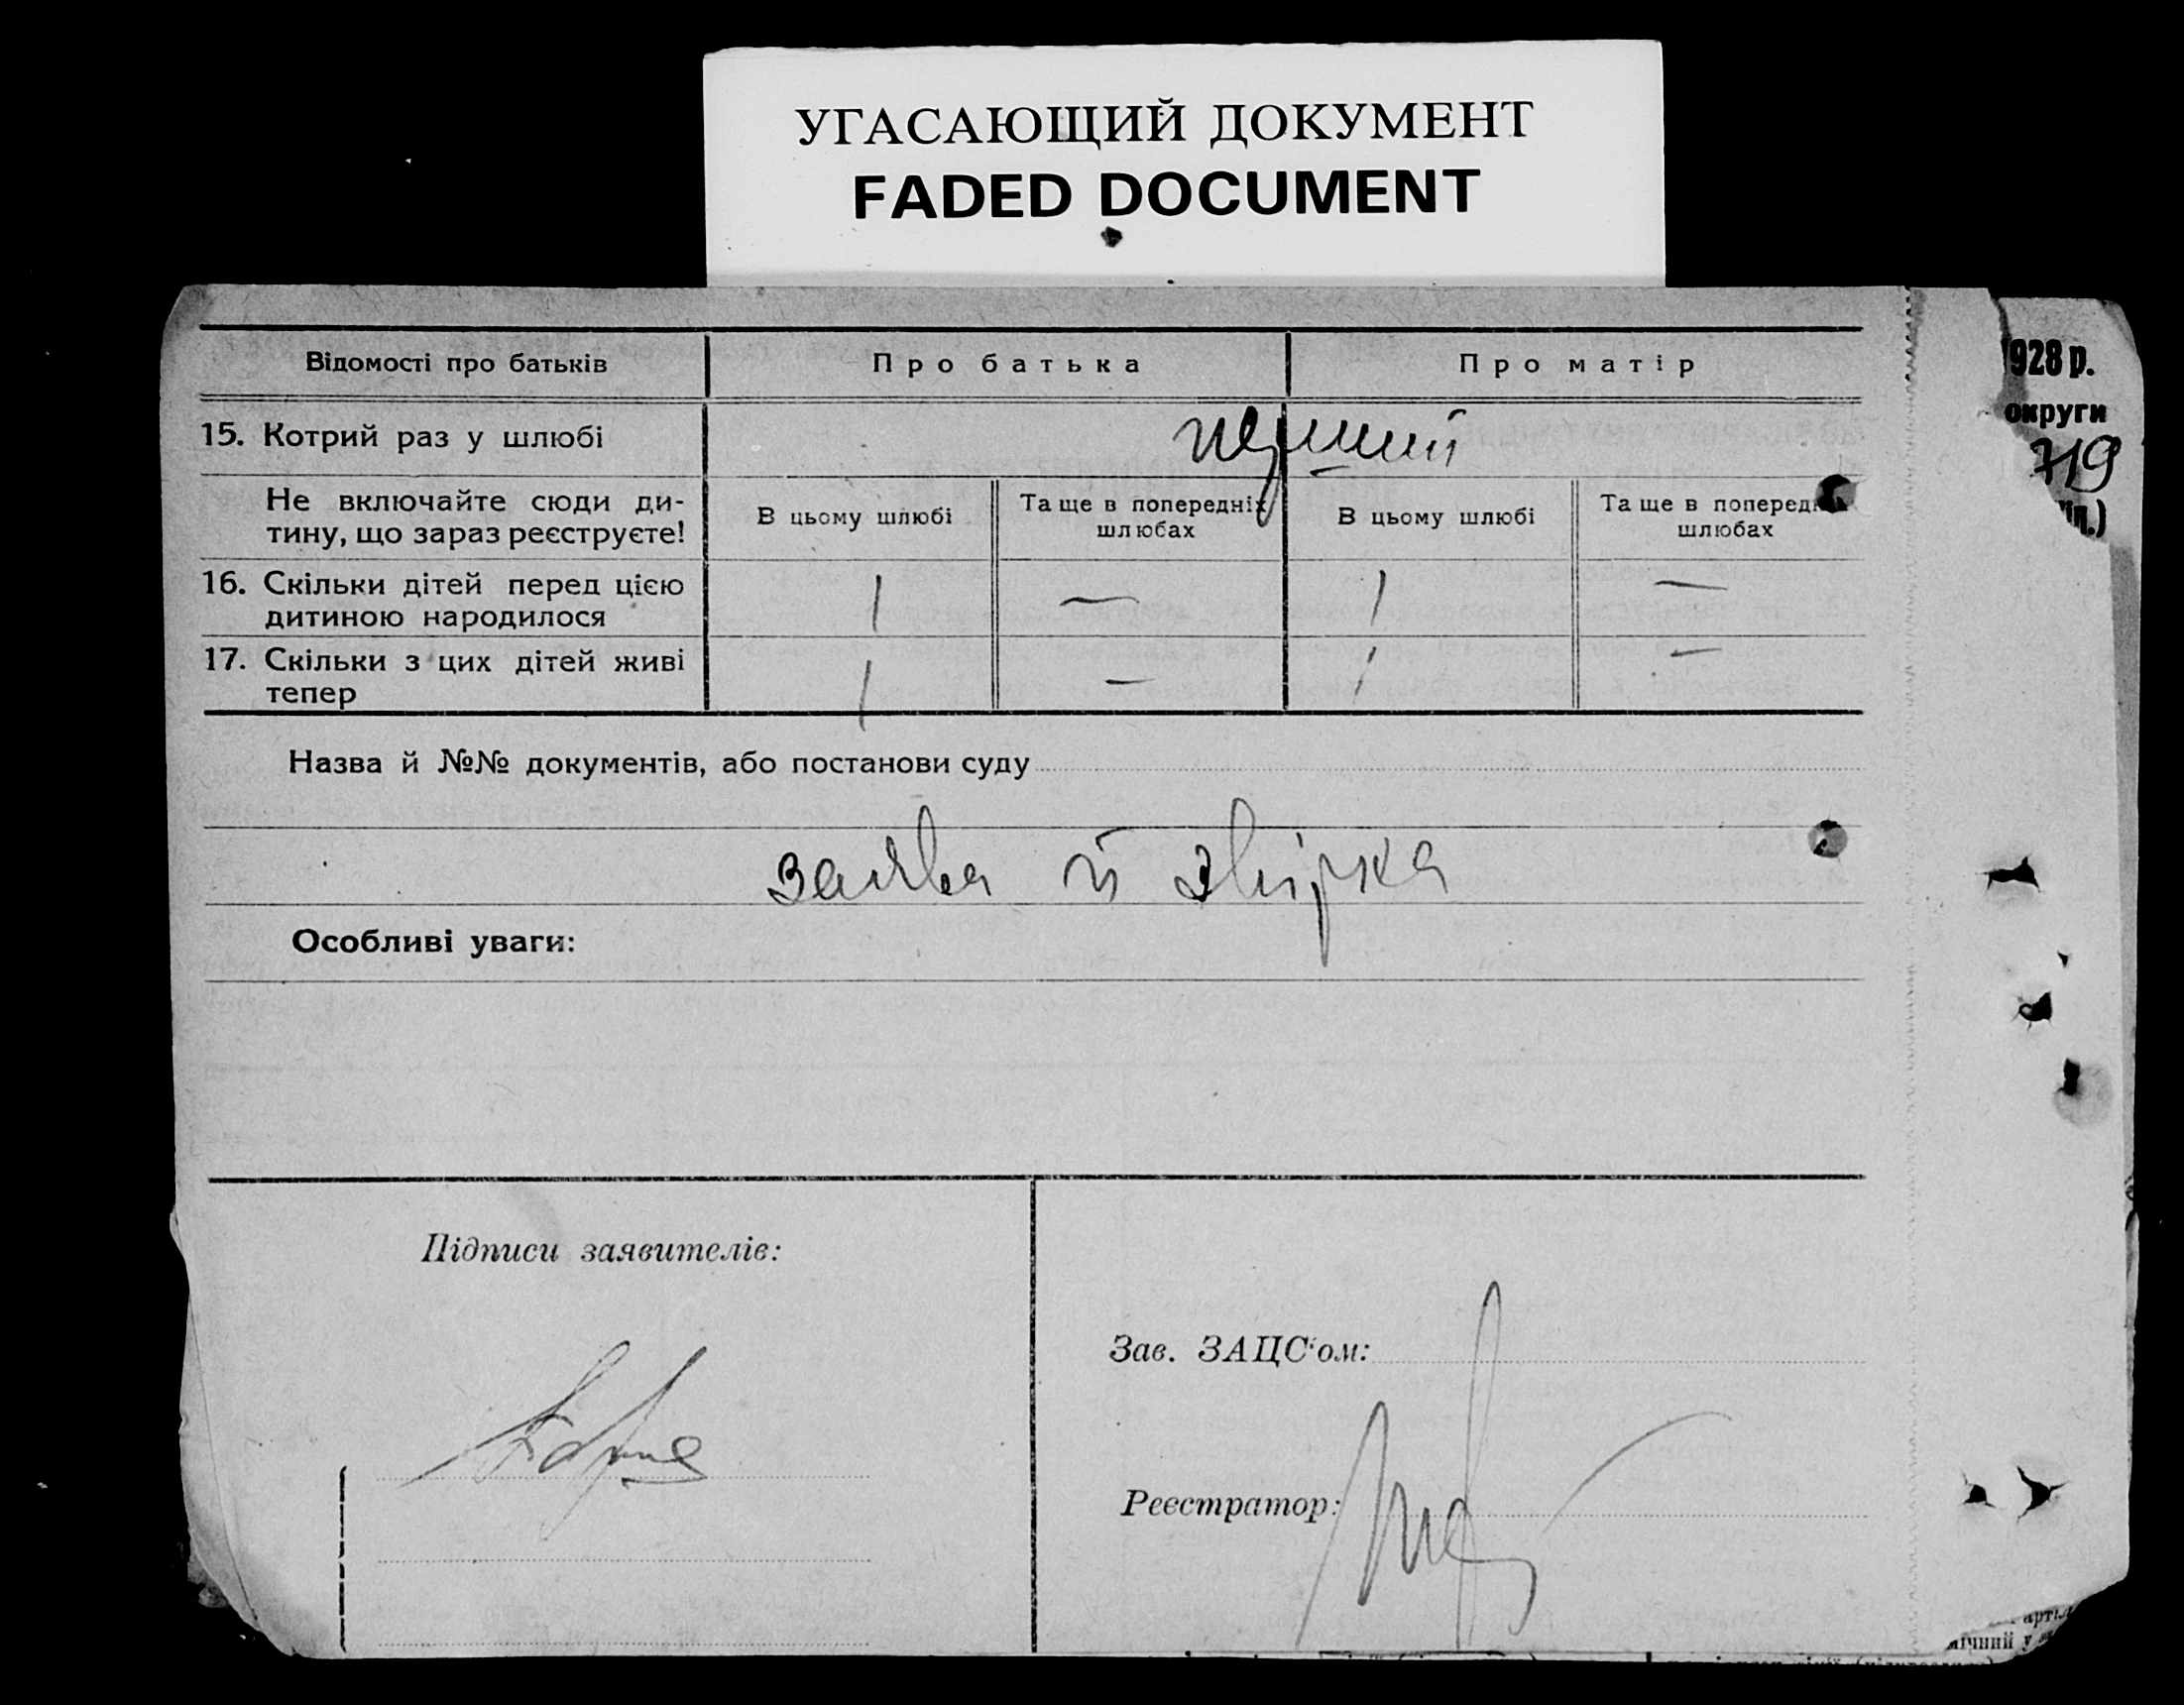 УГАСАЮЩИЙ ДОКУМЕНТ
FADED DOCUMENT
Відомості про батьків
Про батька
Про матір
928 р.
округи
719
15. Котрий раз у шлюбі
перший
Не включайте сюди ди-
тину, що зараз реєструєте!
В цьому шлюбі
Та ще в попередніх
шлюбах
В цьому шлюбі
Та ще в поперед
шлюбах
16. Скільки дітей перед цією
дитиною народилося
1
—
1
—
17. Скільки з цих дітей живі
тепер
1
—
1
—
Назва й №№ документів, або постанови суду
заява й звірка
Особливі уваги:
Підписи заявителів:
Зав. ЗАЦС'ом:
Реєстратор: